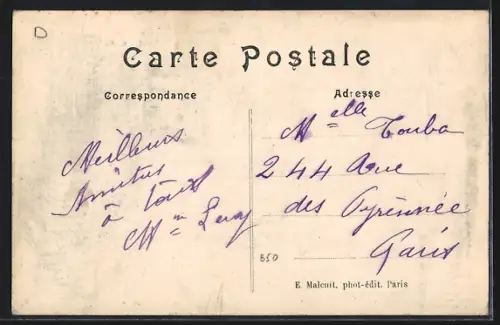 D
Carte Postale
Correspondance
Adresse
Meilleurs
Amitiés
à tous
Mme Leroy
Melle Touba
244 Rue
des Pyrennée
Paris
850
E Malcuit, phot-édit. Paris